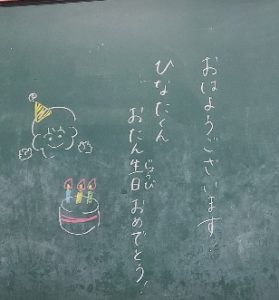 おはようございます!
ひなたくん
おたん生日おめでとう!
じょうび